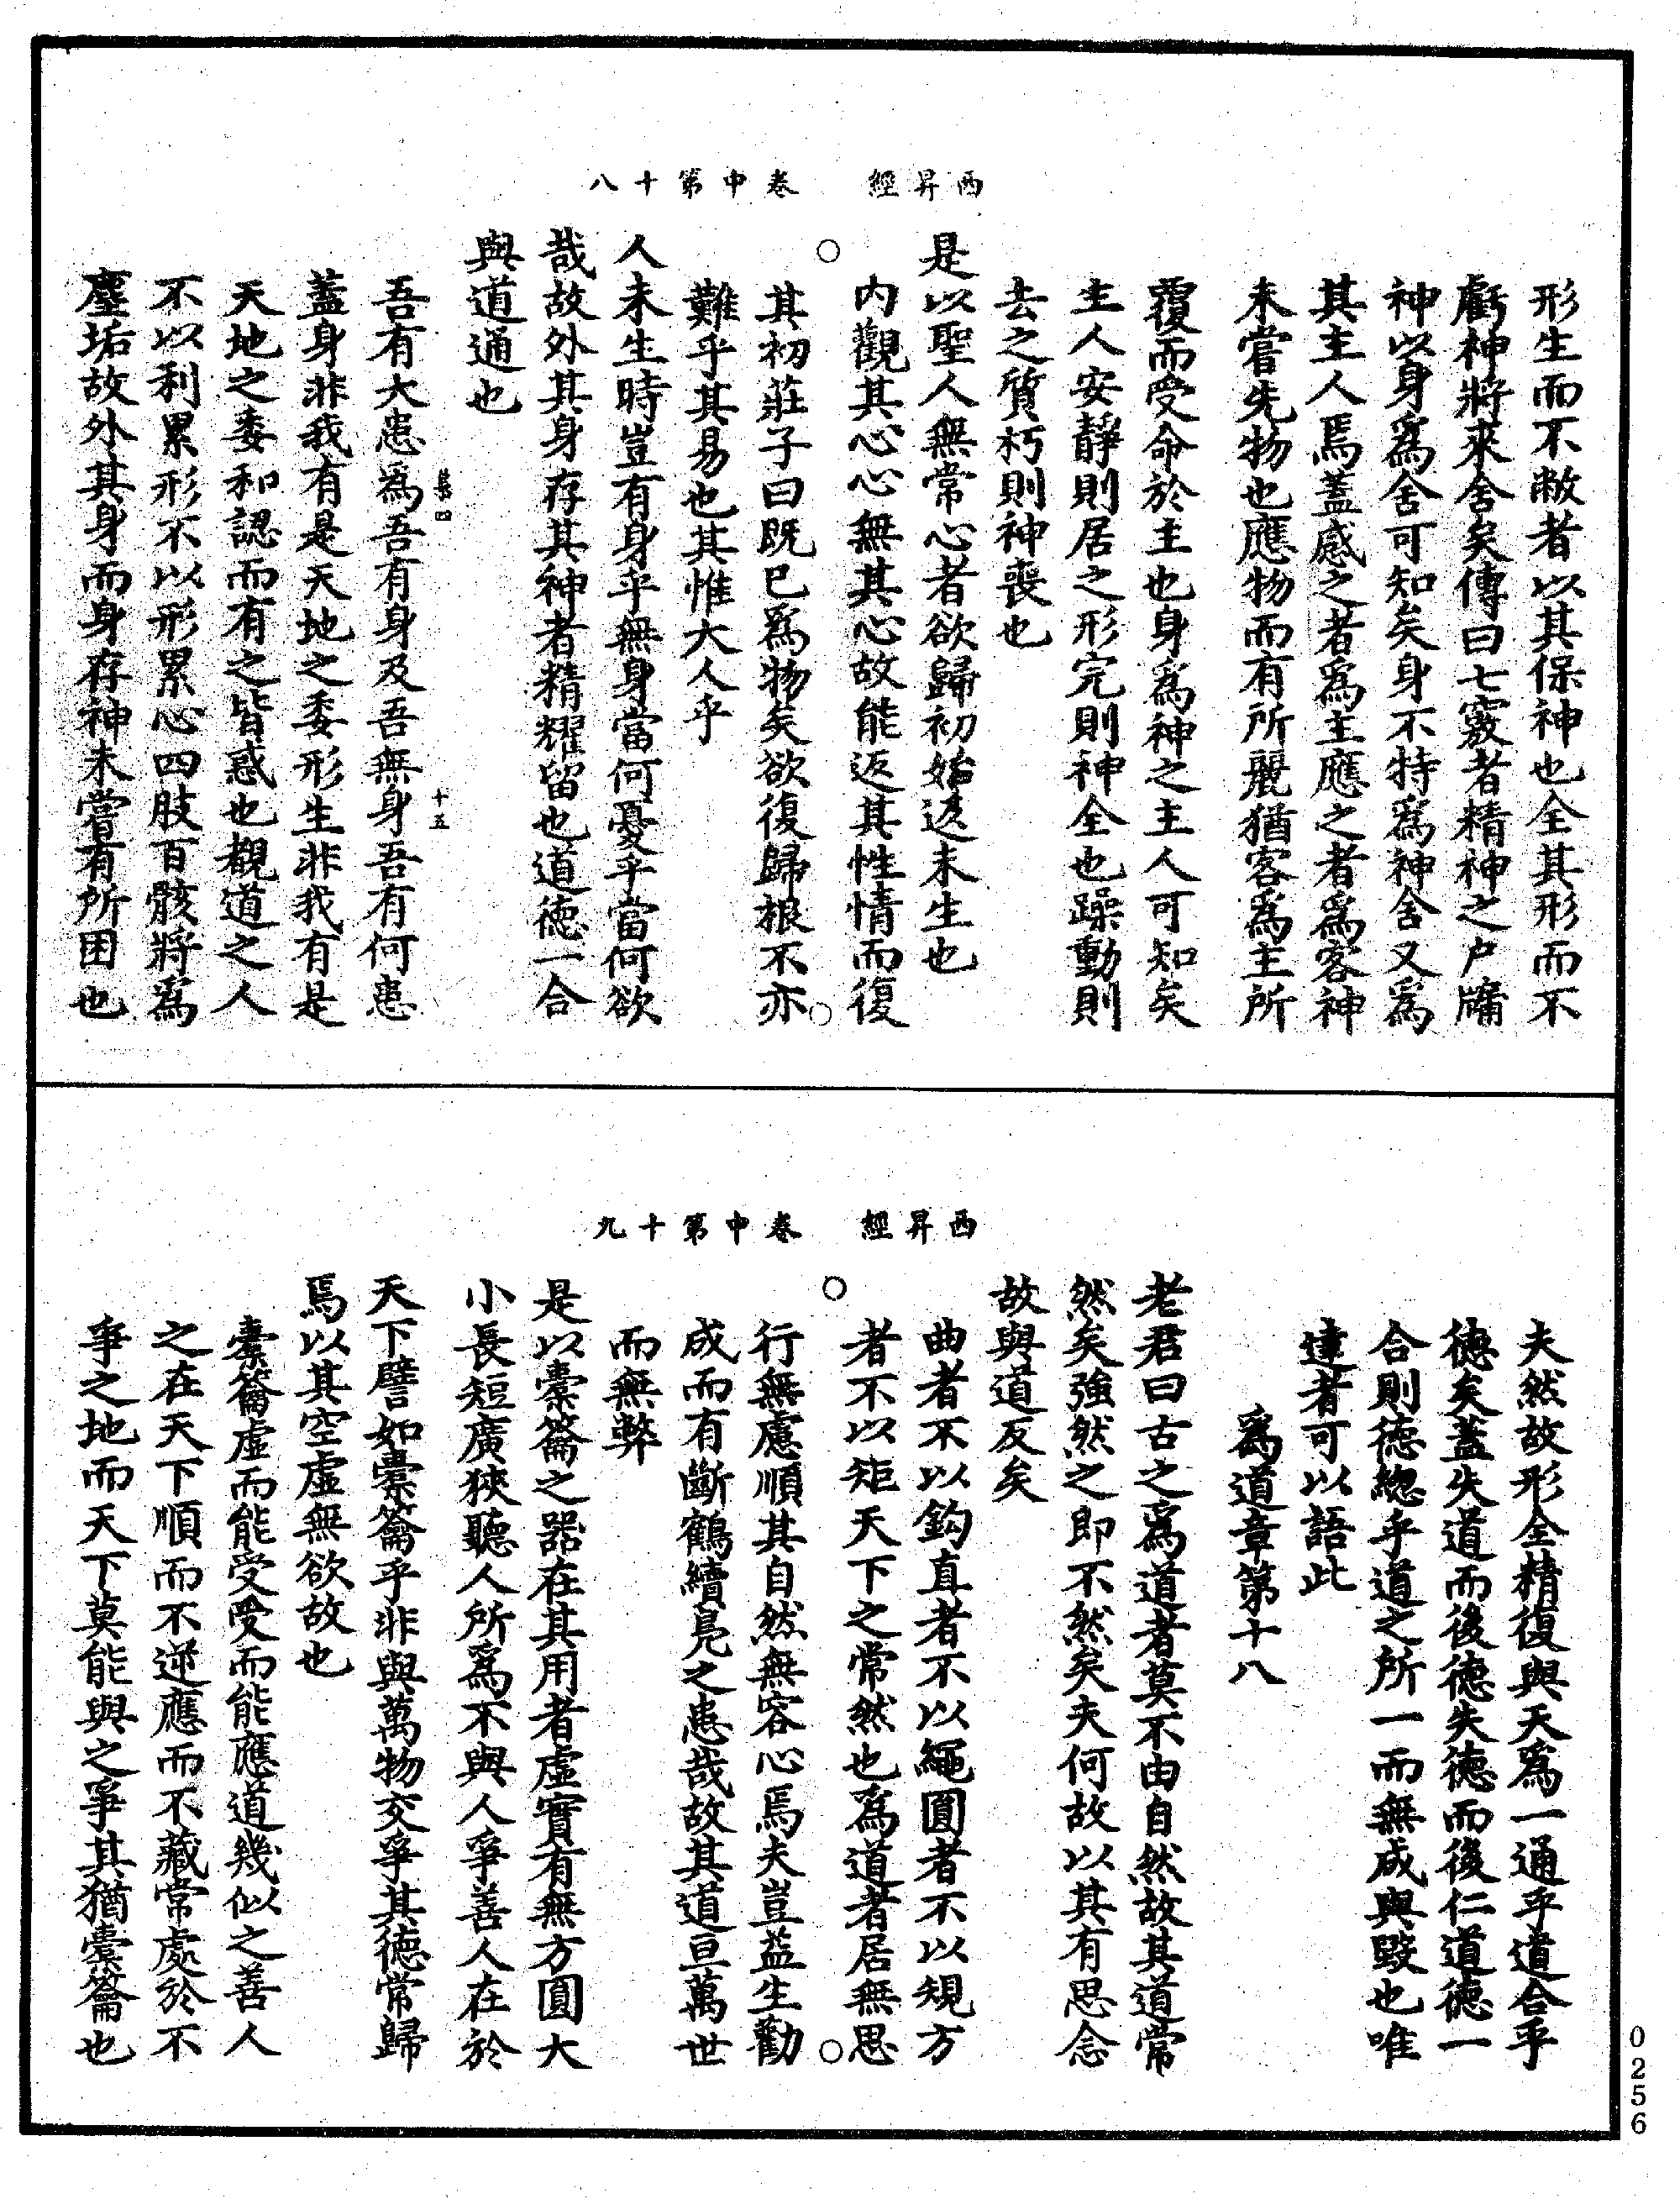 西昇經　卷中第十八
形生而不敝者以其保神也全其形而不
虧神將來舍矣傳曰七竅者精神之户牖
神以身爲舍可知矣身不特爲神舍又爲
其主人焉蓋感之者爲主應之者爲客神
未嘗先物也應物而有所麗猶客爲主所
覆而受命於主也身爲神之主人可知矣
主人安靜則居之形完則神全也躁動則
去之質朽則神喪也
是以聖人無常心者欲歸初始返未生也
内觀其心心無其心故能返其性情而復
其初莊子曰既已爲物矣欲復歸根不亦
難乎其易也其惟大人乎
人未生時豈有身乎無身當何憂乎當何欲
哉故外其身存其神者精耀留也道德一合
與道通也
集四　十五
吾有大患爲吾有身及吾無身吾有何患
蓋身非我有是天地之委形生非我有是
天地之委和認而有之皆惑也觀道之人
不以利累形不以形累心四肢百骸將爲
塵垢故外其身而身存神未嘗有所困也
西昇經　卷中第十九
夫然故形全精復與天爲一通乎道合乎
德矣蓋失道而後德失德而後仁道德一
合則德緫乎道之所一而無成與毀也唯
達者可以語此
爲道章第十八
老君曰古之爲道者莫不由自然故其道常
然矣強然之即不然矣夫何故以其有思念
故與道反矣
曲者不以鈎直者不以繩圓者不以規方
者不以矩天下之常然也爲道者居無思
行無慮順其自然無容心焉夫豈益生勸
成而有斷鶴續鳧之患哉故其道亘萬世
而無弊
是以橐籥之器在其用者虛實有無方圓大
小長短廣狹聽人所爲不與人爭善人在於
天下譬如橐籥乎非與萬物交爭其德常歸
焉以其空虛無欲故也
橐籥虛而能受受而能應道幾似之善人
之在天下順而不逆應而不藏常處於不
爭之地而天下莫能與之爭其猶橐籥也
0256